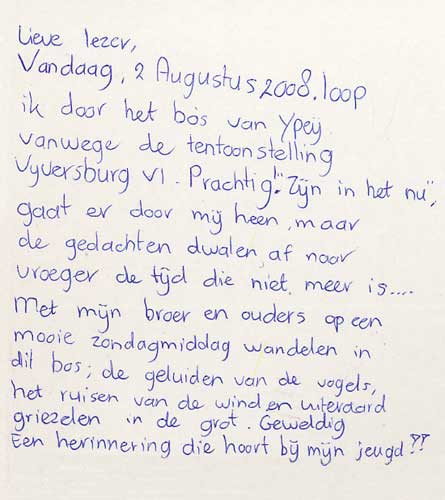 Lieve lezer,
Vandaag, 2 Augustus 2008. loop
ik door het bos van Ypey
vanwege de tentoonstelling
Vyversburg VI. Prachtig! "Zijn in het nu",
gaat er door mij heen, maar
de gedachten dwalen af naar
vroeger de tijd die niet meer is....
Met mijn broer en ouders op een
mooie zondagmiddag wandelen in
dit bos; de geluiden van de vogels,
het ruisen van de wind en uiteraard
griezelen in de grot. Geweldig
Een herinnering die hoort bij mijn jeugd!!